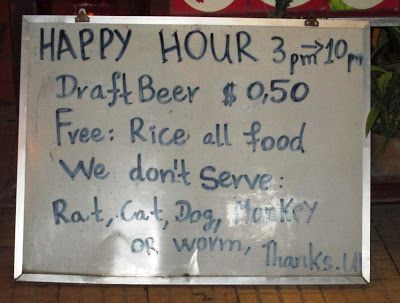 HAPPY HOUR 3pm→10pm
Draft Beer $ 0,50
Free: Rice all food
We don't Serve:
Rat, Cat, Dog, Monkey
or worm, Thanks.